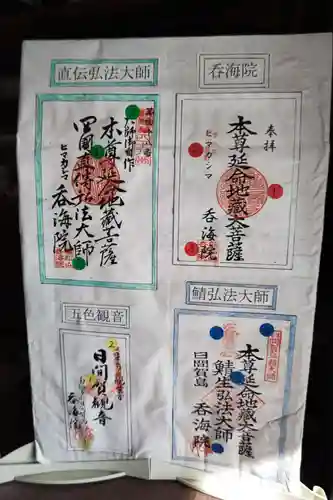 直伝弘法大師
大師御自作
本尊延命地蔵大菩薩
四国直伝弘法大師
ヒマカジマ
呑海院
呑海院
奉拝
本尊延命地蔵大菩薩
ヒマカシマ
呑海院
五色観音
日間賀観音
呑海院
鯖弘法大師
本尊延命地蔵大菩薩
鯖生弘法大師
日間賀島
呑海院